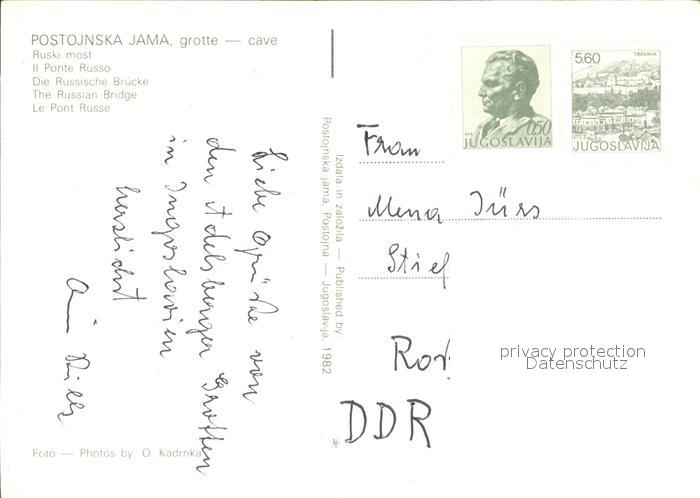 POSTOJNSKA JAMA, grotte — cave
Ruski most
Il Ponte Russo
Die Russische Brücke
The Russian Bridge
Le Pont Russe
Liebe Grüße von
den Adelsberger Grotten
in Jugoslawien
herzlichst
Foto — Photos by: O. Kadrnka
Izdala in založila — Published by
Postojnska jama, Postojna — Jugoslavija, 1982
0,50
JUGOSLAVIJA
TRAVNIK
5.60
JUGOSLAVIJA
Frau
Mena Jürs
Stief
Ros
DDR
privacy protection
Datenschutz